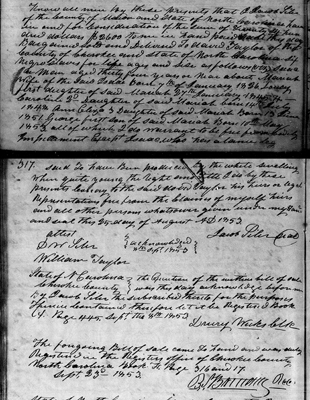 Know all men by these Presents that I Jacob Siler
of the County of Macon and State of North Carolina have
for and in Consideration of the Sum of
dred dollars $3600 to me in hand paid
Bargained Sold and Delivered to David Taylor of
County of Cherokee and State of North Carolina Six
Negro Slaves for life ages and Sex as follows
man aged thirty four years Mariah
wife of the said born 1st of January 1826 Louisa
first daughter of said Mariah 27th January 1845
Caroline 2nd daughter of said Mariah born 14th July
1848 Ann Eliza 3 daughter of said Mariah born 13 June
1851 George first son of said Mariah born
1853 all of which I do warrant to be free from bodily
Impediment Except Isaac who has a lame leg
317. said to have been produced by the white swelling
when quite young the right and title I do by these
presents convey to the said David Taylor his heirs or legal
Representatives free from the Claims of myself heirs
and all other persons whatsoever given under my hand
and seal this 25 day of August AD 1853
Jacob Siler Seal
attest
S W Siler
William Taylor
acknowledged
8th Sept 1853
State of N Carolina
Cherokee County
the Execution of the within bill of sale
was this day acknowledged before me
by Jacob Siler the subscriber thereto for the purposes
therein contained therefore let it be Registered Book
Page 445 Sept the 8th 1853
Drury Weeks Clk
The foregoing Bill of sale came to hand and was duly
Registered in the Registers office of Cherokee County
North Carolina Book Page 316 and 17
Sept 23d 1853